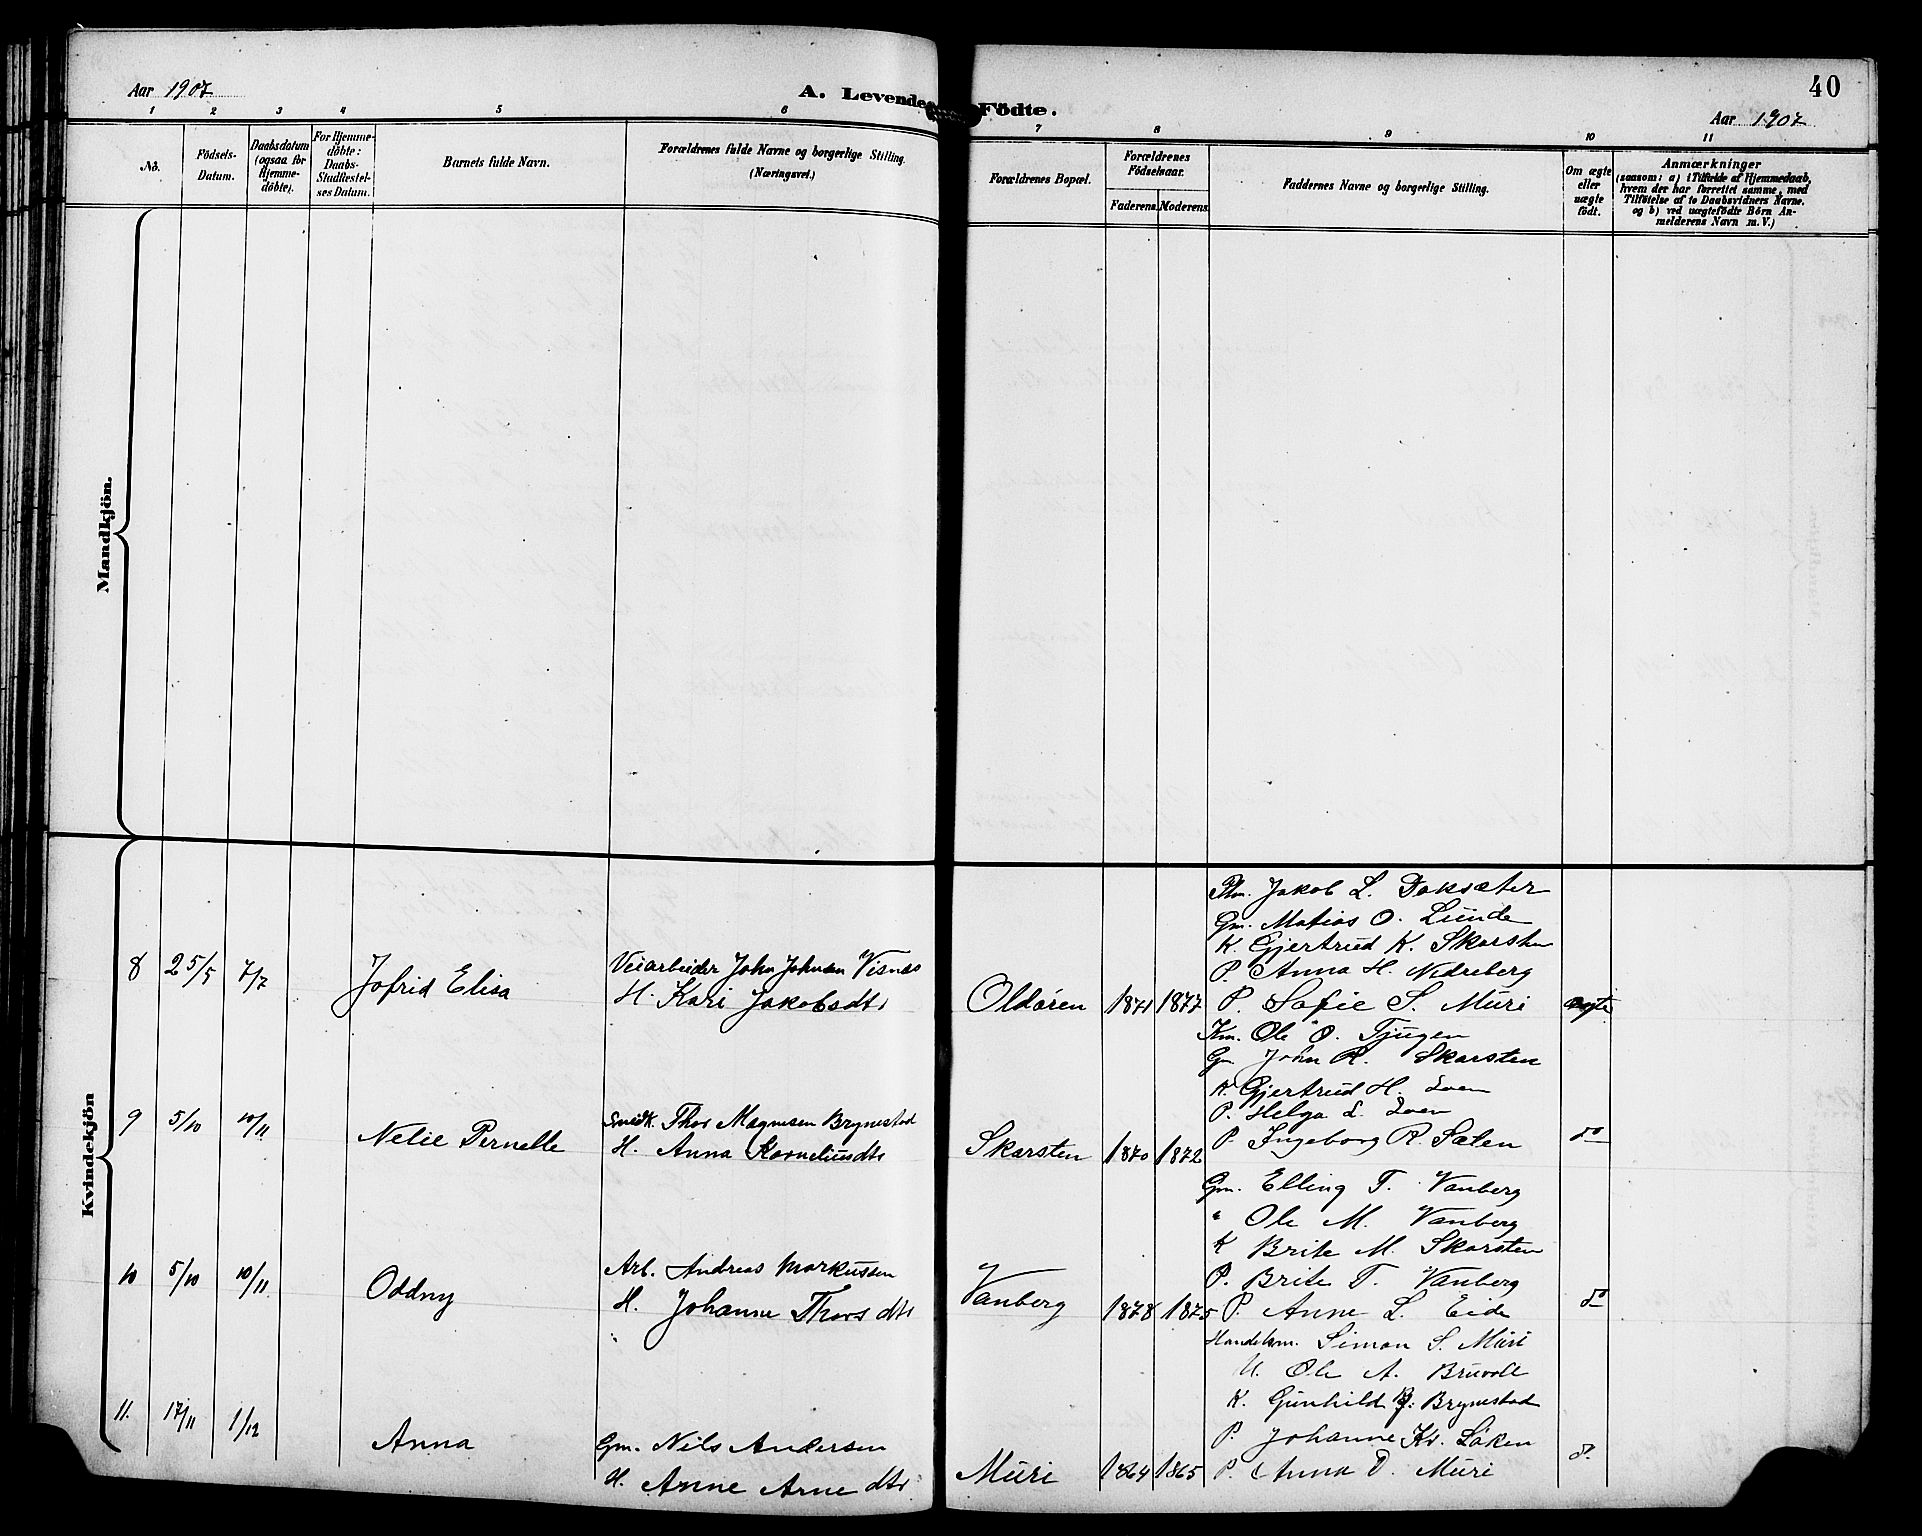 Aar 1907
A. Levende Födte.
40
Aar 1907
1 2 3 4 5 6 7 8 9 10 11
No.
Födsels-Datum.
Daabsdatum (ogsaa for Hjemme-döbte).
For Hjemme-döbte: Daabs-Stadfæstel-ses Datum.
Barnets fulde Navn.
Forældrenes fulde Navne og borgerlige Stilling. (Næringsvei.)
Forældrenes Bopæl.
Forældrenes Födselsaar.
Faderens. Moderens.
Faddernes Navne og borgerlige Stilling.
Om ægte eller uægte födt.
Anmærkninger
(saasom: a) i Tilfælde af Hjemmedaab, hvem der har forrettet samme, med Tilföielse af to Daabsvidners Navne. og b) ved uægtefödte Börn Anmelderens Navn m. V.)
Mandkjön.
Kvindekjön
8 25/5 7/7 Jofrid Elisa
Veiarbeider John Johnsen Visnes
H. Kari Jakobsdtr
Oldören 1871 1877
Jakob L. Daksæter
Gm. Matias O. Lunde
K. Gjertrud K. Skarsten
P. Anna H. Nedreberg
P. Sofie S. Muri
ægte
9 5/10 10/11 Nelie Pernelle
Smedk. Thor Magnusen Brynestad
H. Anna Korneliusdtr
Skarsten 1870 1872
Km. Ole O. Tjugen
Gm John R. Skarsten
K. Gjertrud H. Loen
P. Helga L. Loen
P. Ingeborg R. Sæten
do
10 5/10 10/11 Oddny
Arb. Andreas Markussen
H. Johanne Thorsdtr
Vanberg 1878 1875
Gm. Elling T. Vanberg
" Ole M. Vanberg
K Brite M. Skarsten
P. Brite T. Vanberg
P. Anne L. Eide
do
11. 17/11 1/12 Anna
Gm. Nils Andersen
H. Anne Arnedtr
Muri 1864 1865
Handelsm. Simon S. Muri
U. Ole A. Bruvoll
K. Gunhild Brynestad
P. Johanne Kr. Löken
P. Anna D. Muri
do